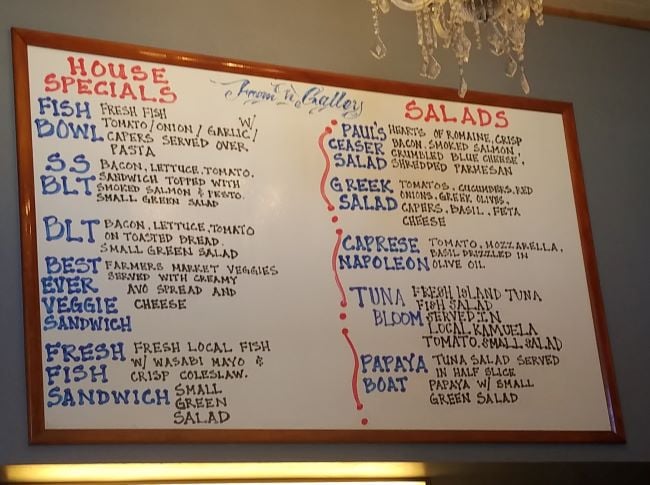 From the Galley
HOUSE
SPECIALS
FISH BOWL
FRESH FISH W/
TOMATO/ONION/GARLIC/
CAPERS SERVED OVER
PASTA
SS BLT
BACON, LETTUCE, TOMATO.
SANDWICH TOPPED WITH
SMOKED SALMON & PESTO.
SMALL GREEN SALAD
BLT
BACON, LETTUCE, TOMATO
ON TOASTED BREAD.
SMALL GREEN SALAD
BEST EVER VEGGIE SANDWICH
FARMERS MARKET VEGGIES
SERVED WITH CREAMY
AVO SPREAD AND
CHEESE
FRESH FISH SANDWICH
FRESH LOCAL FISH
W/ WASABI MAYO &
CRISP COLESLAW.
SMALL
GREEN
SALAD
SALADS
PAUL'S CEASER SALAD
HEARTS OF ROMAINE, CRISP
BACON, SMOKED SALMON,
CRUMBLED BLUE CHEESE,
SHREDDED PARMESAN
GREEK SALAD
TOMATOS, CUCUMBERS, RED
ONIONS, GREEK OLIVES,
CAPERS, BASIL, FETA
CHEESE
CAPRESE NAPOLEON
TOMATO, MOZZARELLA,
BASIL DRIZZLED IN
OLIVE OIL
TUNA BLOOM
FRESH ISLAND TUNA
FISH SALAD
SERVED IN
LOCAL KAMUELA
TOMATO. SMALL SALAD
PAPAYA BOAT
TUNA SALAD SERVED
IN HALF SLICE
PAPAYA W/ SMALL
GREEN SALAD